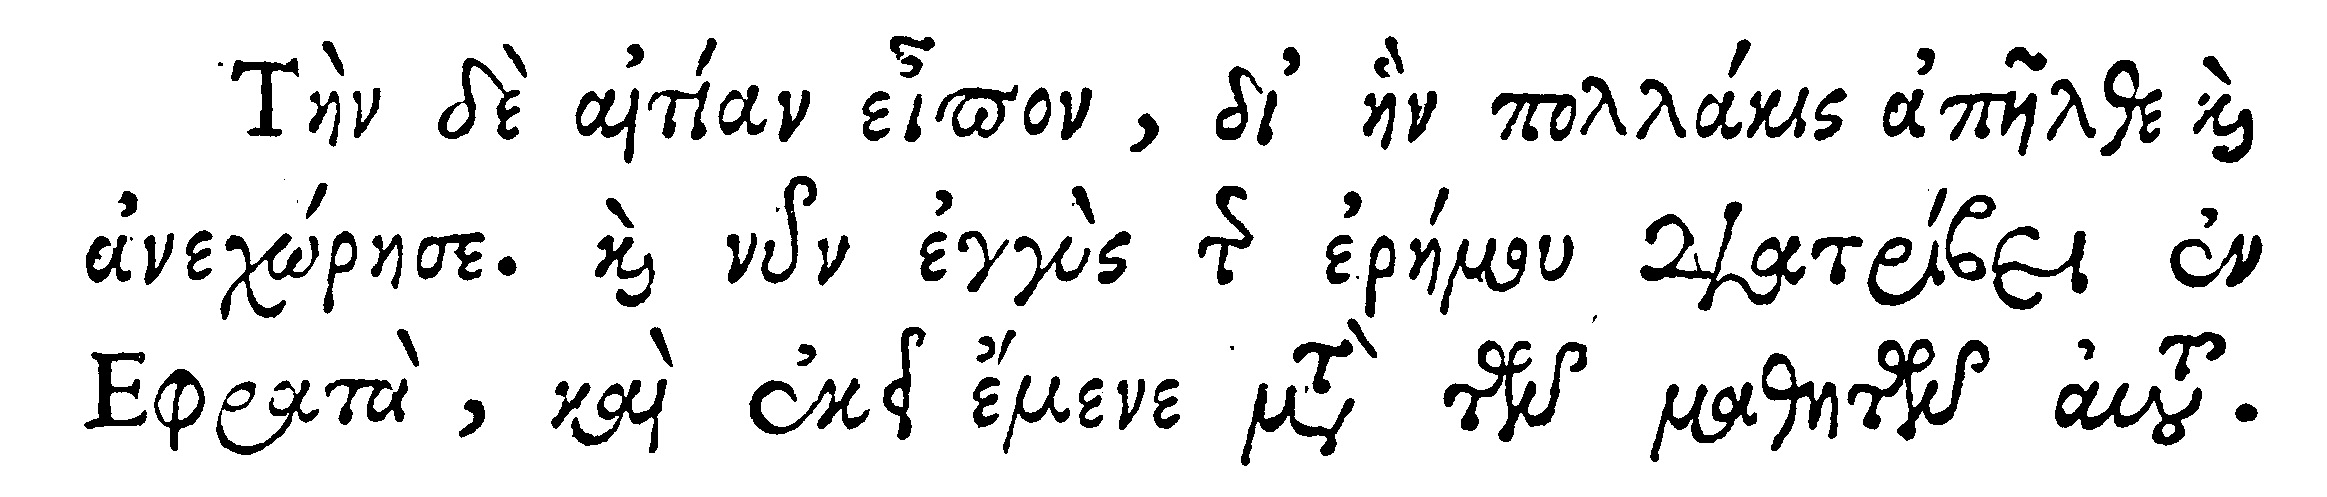 Τὴν δὲ αἰτίαν εἶπον, δι' ἣν πολλάκις ἀπῆλθε ϗ̀
ἀνεχώρησε. ϗ̀ νῦν ἐγγὺς τῆς ἐρήμου διατρίβει ἐν
Εφρατὰ, καὶ ἐκεῖ ἔμενε μετὰ τῶν μαθητῶν αὐτοῦ.